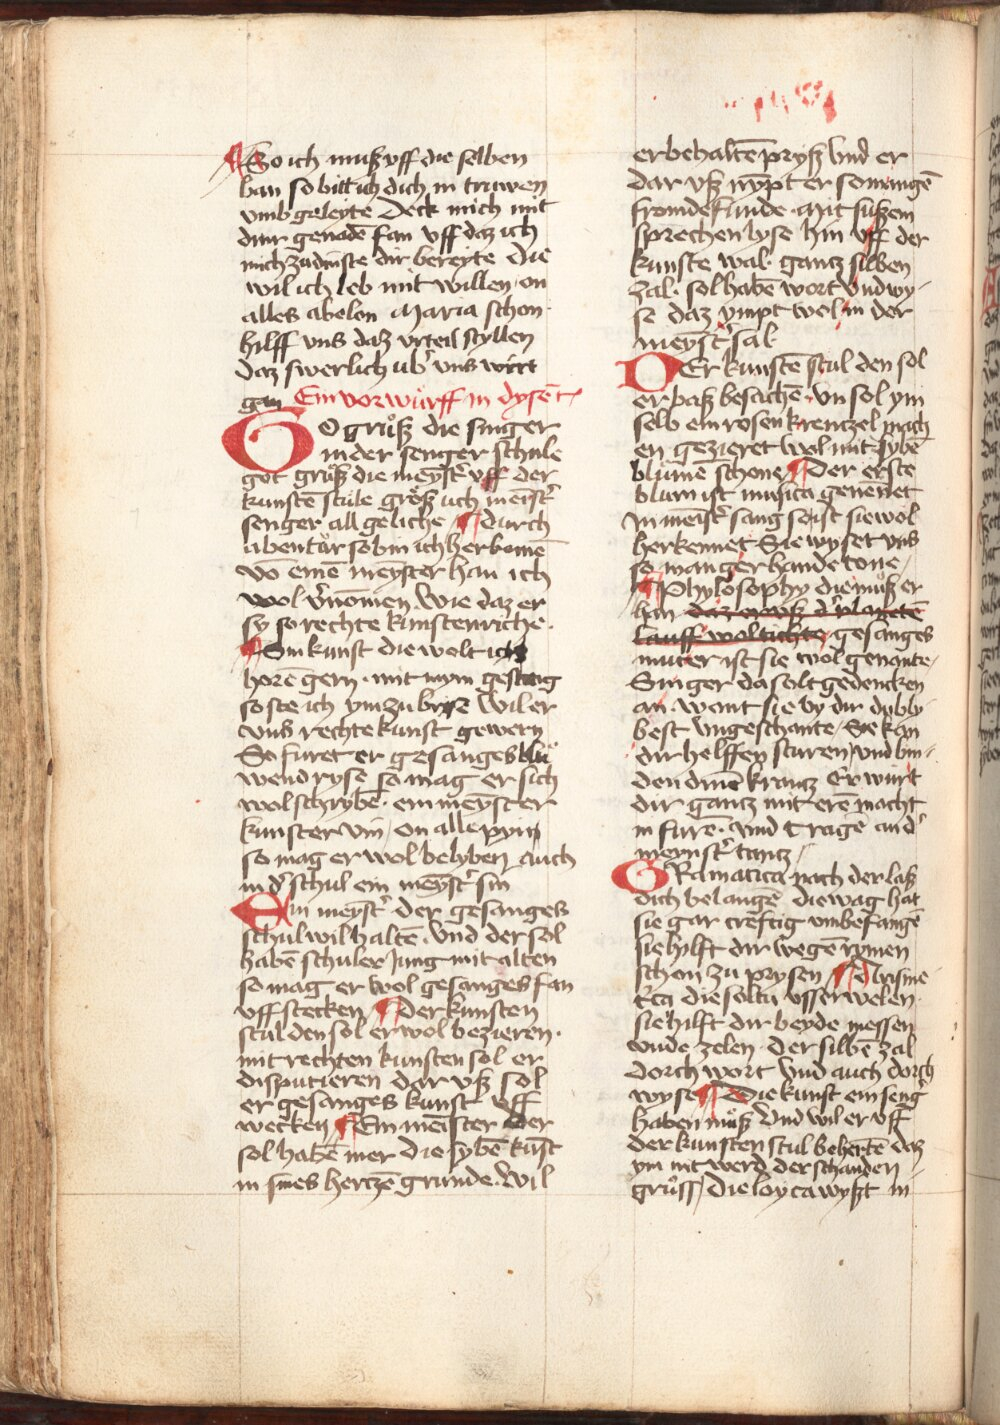 So ich muß vff die selben
ban so bitt ich dich in truwen
vmb geleyte Deck mich mit
diner genadē fan vff daz ich
mich zu dinste dir bereyte Die
wil ich leb mit willen / on
alles abelon Maria schon
hilff vns daz vrteil styllen
daz swerlich vb' vns wirt
gan Ein vorwürff in dysē t
GO grüß die singer
in der senger schule
got grüß die meyst' vff der
kunstē stule grőß uch meist'
senger all geliche / durch
abentür so bin ich her komē
vō emē meyster han ich
wol v'nomen wie daz er
sy so rechte kunstenriche
Sin kunst die wolt ich
horē gern mit mym gesang
so ste ich ym zu wil er
vns rechte kunst gewern
So furet er gesanges blü
wend ryse so mag er sich
wol schrybē ein meyster
kunster vin / on alle pyin
so mag er wol belyben auch
in d' schul ein meyst' sin
Ein meyst' der gesanges
schul wil haltē vnd der sol
habē schuler jung mit alten
so mag er wol gesanges fan
vff stecken / der kunsten
stul den sol er wol bezieren
mit rechten kunsten sol er
disputieren dar vß sol
er gesanges kunst vff
wecken Ein meister der
sol habē mer die sybē kūst
in sines hertzē grunde wil
er behaltē pryß Vnd er
dar vß nympt er so mangē
fromde funde Mit sußem
sprechen lyse hin vff der
kunste wal gantz silben
zal sol habē wort vnd wy-
se daz ympt wol in der
meyst' sal
DEr kunstē stul den sol
er paß besachē vn sol ym
selb ein rosen krentzel mach
en gezieret wol mit sybē
blümē schone Der erste
blum ist musica genēnet
In meist' sang so ist sie wol
herkennet Sie wyset vns
so manger hande tone /
Phylosophy die muß er
han daz er d' planetē
lauff wol tichte gesanges
muter ist sie wol genante /
Singer da solt gedencken
an want sie by dir dybly
best vngeschante / Sie kan
dir helffen sturen / vnd bin-
den dinē krantz Er wirt
dir gantz mit erē macht
in furē vnd tragē an d'
meynst' tantz /
GRamatica nach der laß
dich belangē die wag hat
sie gar creftig vmbefangē
sie hylft dir wegē rymen
schon zu prysen Arisme
t'ca die soltu vsserwelen
sie hilft dir beyde messen
vnde zelen der silbē zal
dorch wort vnd auch dorch
wyse Die kunst ein seng'
haben muß Vnd wil er vff
der kunsten stul behertē daz
ym nit werd der schanden
grüss / Die loyca wyßt in